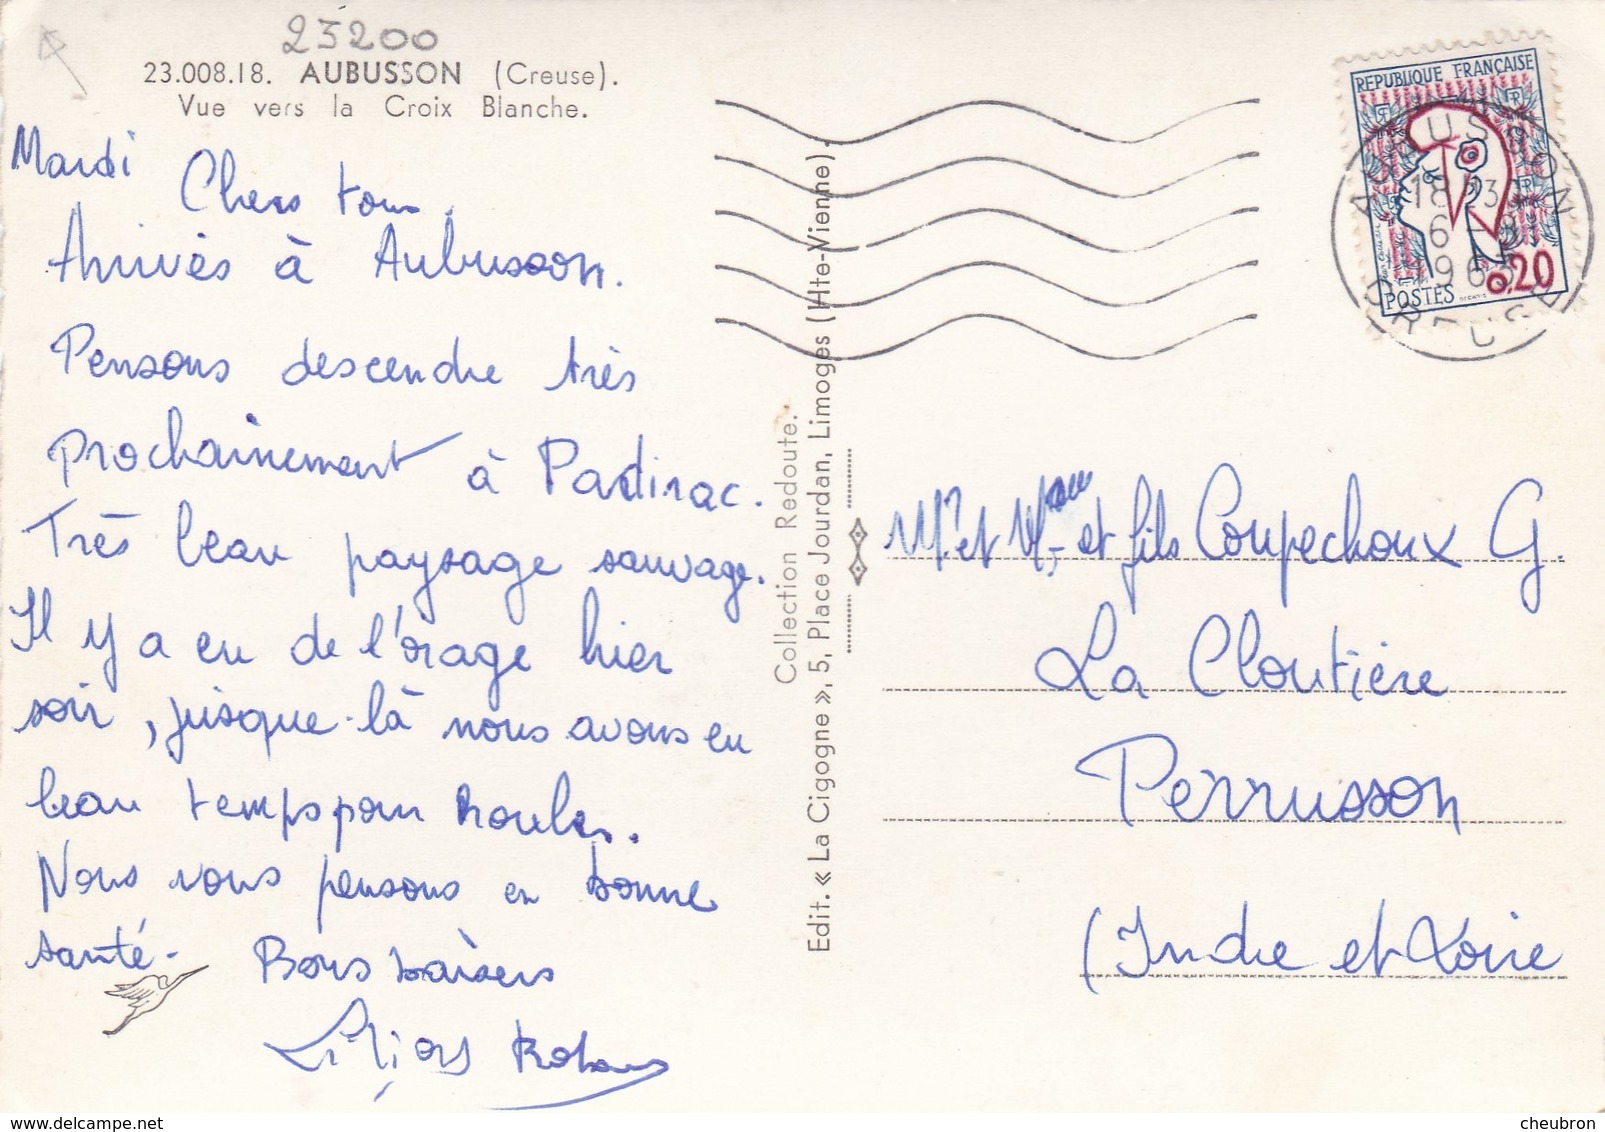 23200
23.008.18. AUBUSSON (Creuse).
Vue vers la Croix Blanche.
Mardi
Chers tous.
Arrivés à Aubusson.
Pensons descendre très
prochainement à Padirac.
Très beau paysage sauvage.
Il y a eu de l'orage hier
soir, jusque-là nous avons eu
beau temps pour rouler.
Nous vous pensons en bonne
santé.
Bons baisers
Collection Redoute.
Edit. « La Cigogne », 5, Place Jourdan, Limoges (Hte-Vienne).
REPUBLIQUE FRANÇAISE
0,20
POSTES
AUBUSSON
18H30
6 - 8
1963
CREUSE
Mr et Mme et fils Coupechoux G.
La Cloutière
Perrusson
(Indre et Loire
cheubron_com